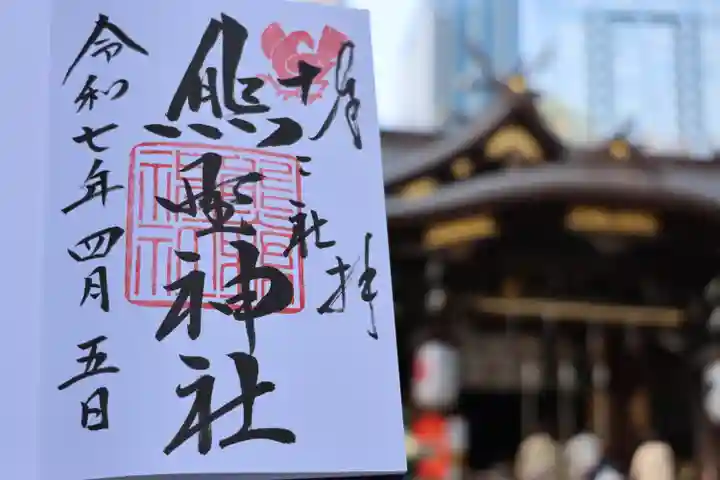 奉拝
十二社
熊野神社
令和七年四月五日